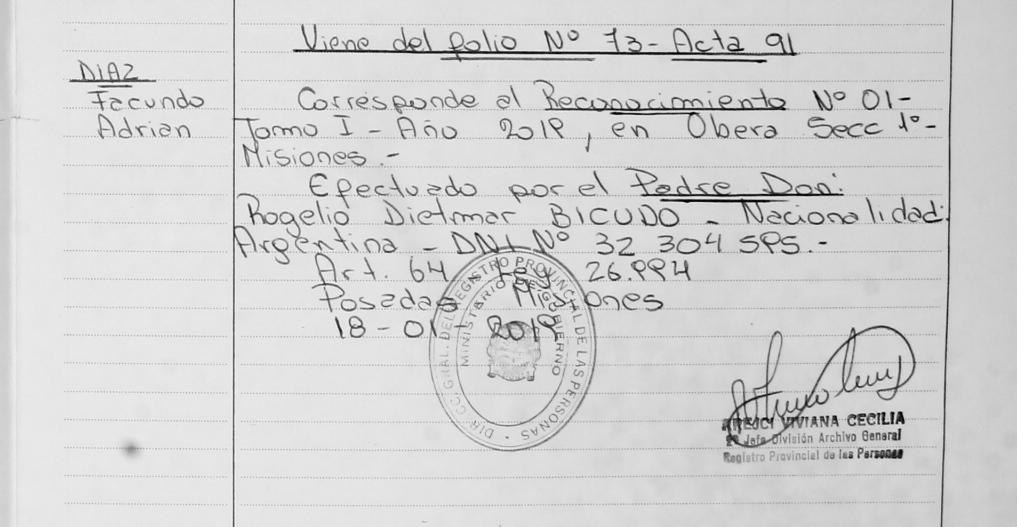 Viene del folio Nº 73 - Acta 91
DIAZ
Facundo
Adrian
Corresponde al Reconocimiento Nº 01-
Tomo I - Año 2019, en Obera Secc 1º-
Misiones.-
Efectuado por el Padre Don:
Rogelio Dietmar BICUDO - Nacionalidad:
Argentina - DNI Nº 32 304 595.-
Art. 64 - Ley 26.994
Posadas Misiones
18 - 01 - 2019
DIR. CC. GRAL. DEL REGISTRO PROVINCIAL DE LAS PERSONAS
MINISTERIO DE GOBIERNO
VIVIANA CECILIA
Jefa División Archivo General
Registro Provincial de las Personas